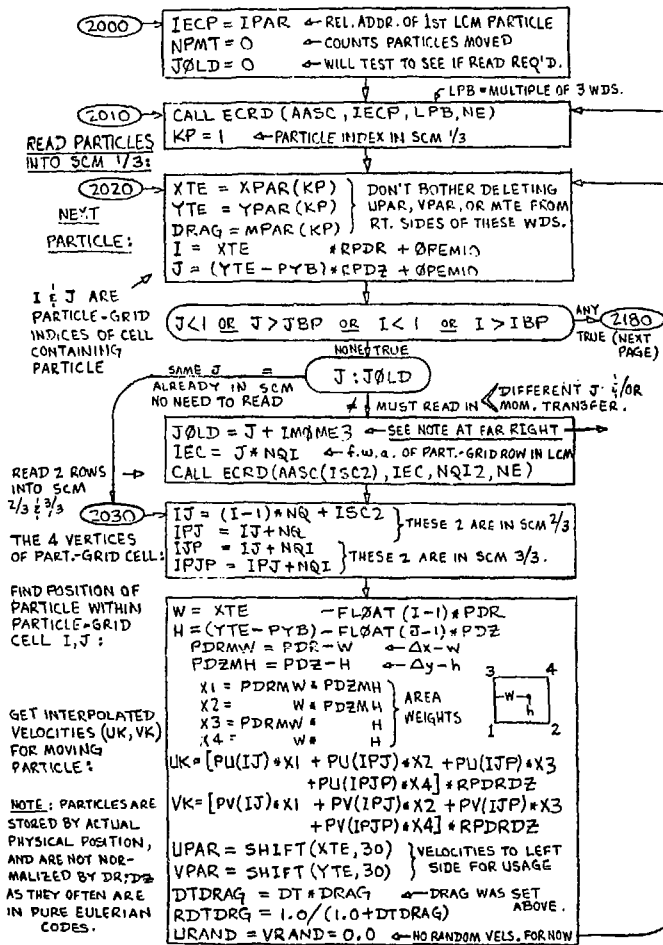 2000
IECP = IPAR ← REL. ADDR. OF 1ST LCM PARTICLE
NPMT = O ← COUNTS PARTICLES MOVED
JØLD = O ← WILL TEST TO SEE IF READ REQ'D.
LPB = MULTIPLE OF 3 WDS.
2010
CALL ECRD (AASC, IECP, LPB, NE)
KP = 1 ← PARTICLE INDEX IN SCM 1/3
READ PARTICLES
INTO SCM 1/3:
2020
XTE = XPAR(KP)
YTE = YPAR(KP)
DRAG = MPAR(KP)
DON'T BOTHER DELETING
UPAR, VPAR, OR MTE FROM
RT. SIDES OF THESE WDS.
I = XTE *RPDR + ØPEM10
J = (YTE-PYB)*RPDZ + ØPEM10
NEXT
PARTICLE:
I & J ARE
PARTICLE-GRID
INDICES OF CELL
CONTAINING
PARTICLE
J<1 OR J>JBP OR I<1 OR I>IBP
ANY
TRUE
2180
(NEXT
PAGE)
NONE TRUE
J:JØLD
SAME J =
ALREADY IN SCM
NO NEED TO READ
≠ MUST READ IN
DIFFERENT J &/OR
MOM. TRANSFER.
JØLD = J + IMØME3 ← SEE NOTE AT FAR RIGHT
IEC = J * NQI ← f.w.a. OF PART.-GRID ROW IN LCM
CALL ECRD(AASC(ISC2), IEC, NQI2, NE)
READ 2 ROWS
INTO SCM
2/3 & 3/3
2030
IJ = (I-1)*NQ + ISC2
IPJ = IJ+NQ
THESE 2 ARE IN SCM 2/3
IJP = IJ+NQI
IPJP = IPJ+NQI
THESE 2 ARE IN SCM 3/3.
THE 4 VERTICES
OF PART.-GRID CELL:
FIND POSITION OF
PARTICLE WITHIN
PARTICLE-GRID
CELL I,J:
W = XTE -FLØAT(I-1)*PDR
H = (YTE-PYB)-FLØAT(J-1)*PDZ
PDRMW = PDR-W ← Δx-w
PDZMH = PDZ-H ← Δy-h
X1 = PDRMW * PDZMH
X2 = W * PDZMH
X3 = PDRMW * H
X4 = W * H
AREA
WEIGHTS
3 4
W
h
1 2
GET INTERPOLATED
VELOCITIES (UK,VK)
FOR MOVING
PARTICLE:
UK=[PU(IJ)*X1 +PU(IPJ)*X2 +PU(IJP)*X3
+PU(IPJP)*X4]*RPDRDZ
VK=[PV(IJ)*X1 +PV(IPJ)*X2 +PV(IJP)*X3
+PV(IPJP)*X4]*RPDRDZ
NOTE: PARTICLES ARE
STORED BY ACTUAL
PHYSICAL POSITION,
AND ARE NOT NOR-
MALIZED BY DR;DZ
AS THEY OFTEN ARE
IN PURE EULERIAN
CODES.
UPAR = SHIFT(XTE,30)
VPAR = SHIFT(YTE,30)
VELOCITIES TO LEFT
SIDE FOR USAGE
DTDRAG = DT*DRAG ← DRAG WAS SET
ABOVE.
RDTDRG = 1.0/(1.0+DTDRAG)
URAND = VRAND = 0.0 ← NO RANDOM VELS. FOR NOW